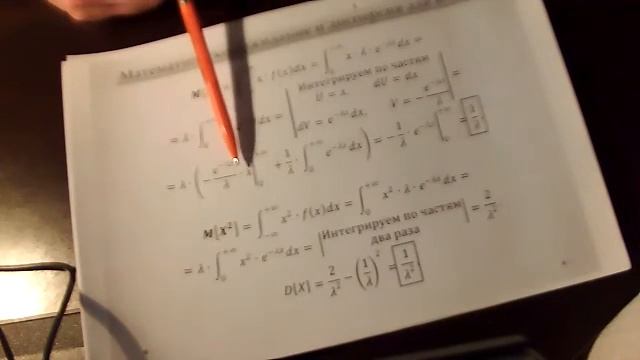 Математическое ожидание и дисперсия для
x · f(x)dx = ∫₀^{+∞} x · λ · e^{-λx} dx =
= λ · ∫₀ dx = | Интегрируем по частям
U = x, dU = dx
dV = e^{-λx} dx, V = - e^{-λx}/λ | =
= λ · ( - e^{-λx}/λ · x |₀^{+∞} + 1/λ · ∫₀^{+∞} e^{-λx} dx ) = - 1/λ · e^{-λx} |₀^{+∞} = 1/λ
M[X²] = ∫_{-∞}^{+∞} x² · f(x)dx = ∫₀^{+∞} x² · λ · e^{-λx} dx =
= λ · ∫₀^{+∞} x² · e^{-λx} dx = | Интегрируем по частям два раза | = 2/λ²
D[X] = 2/λ² - (1/λ)² = 1/λ²